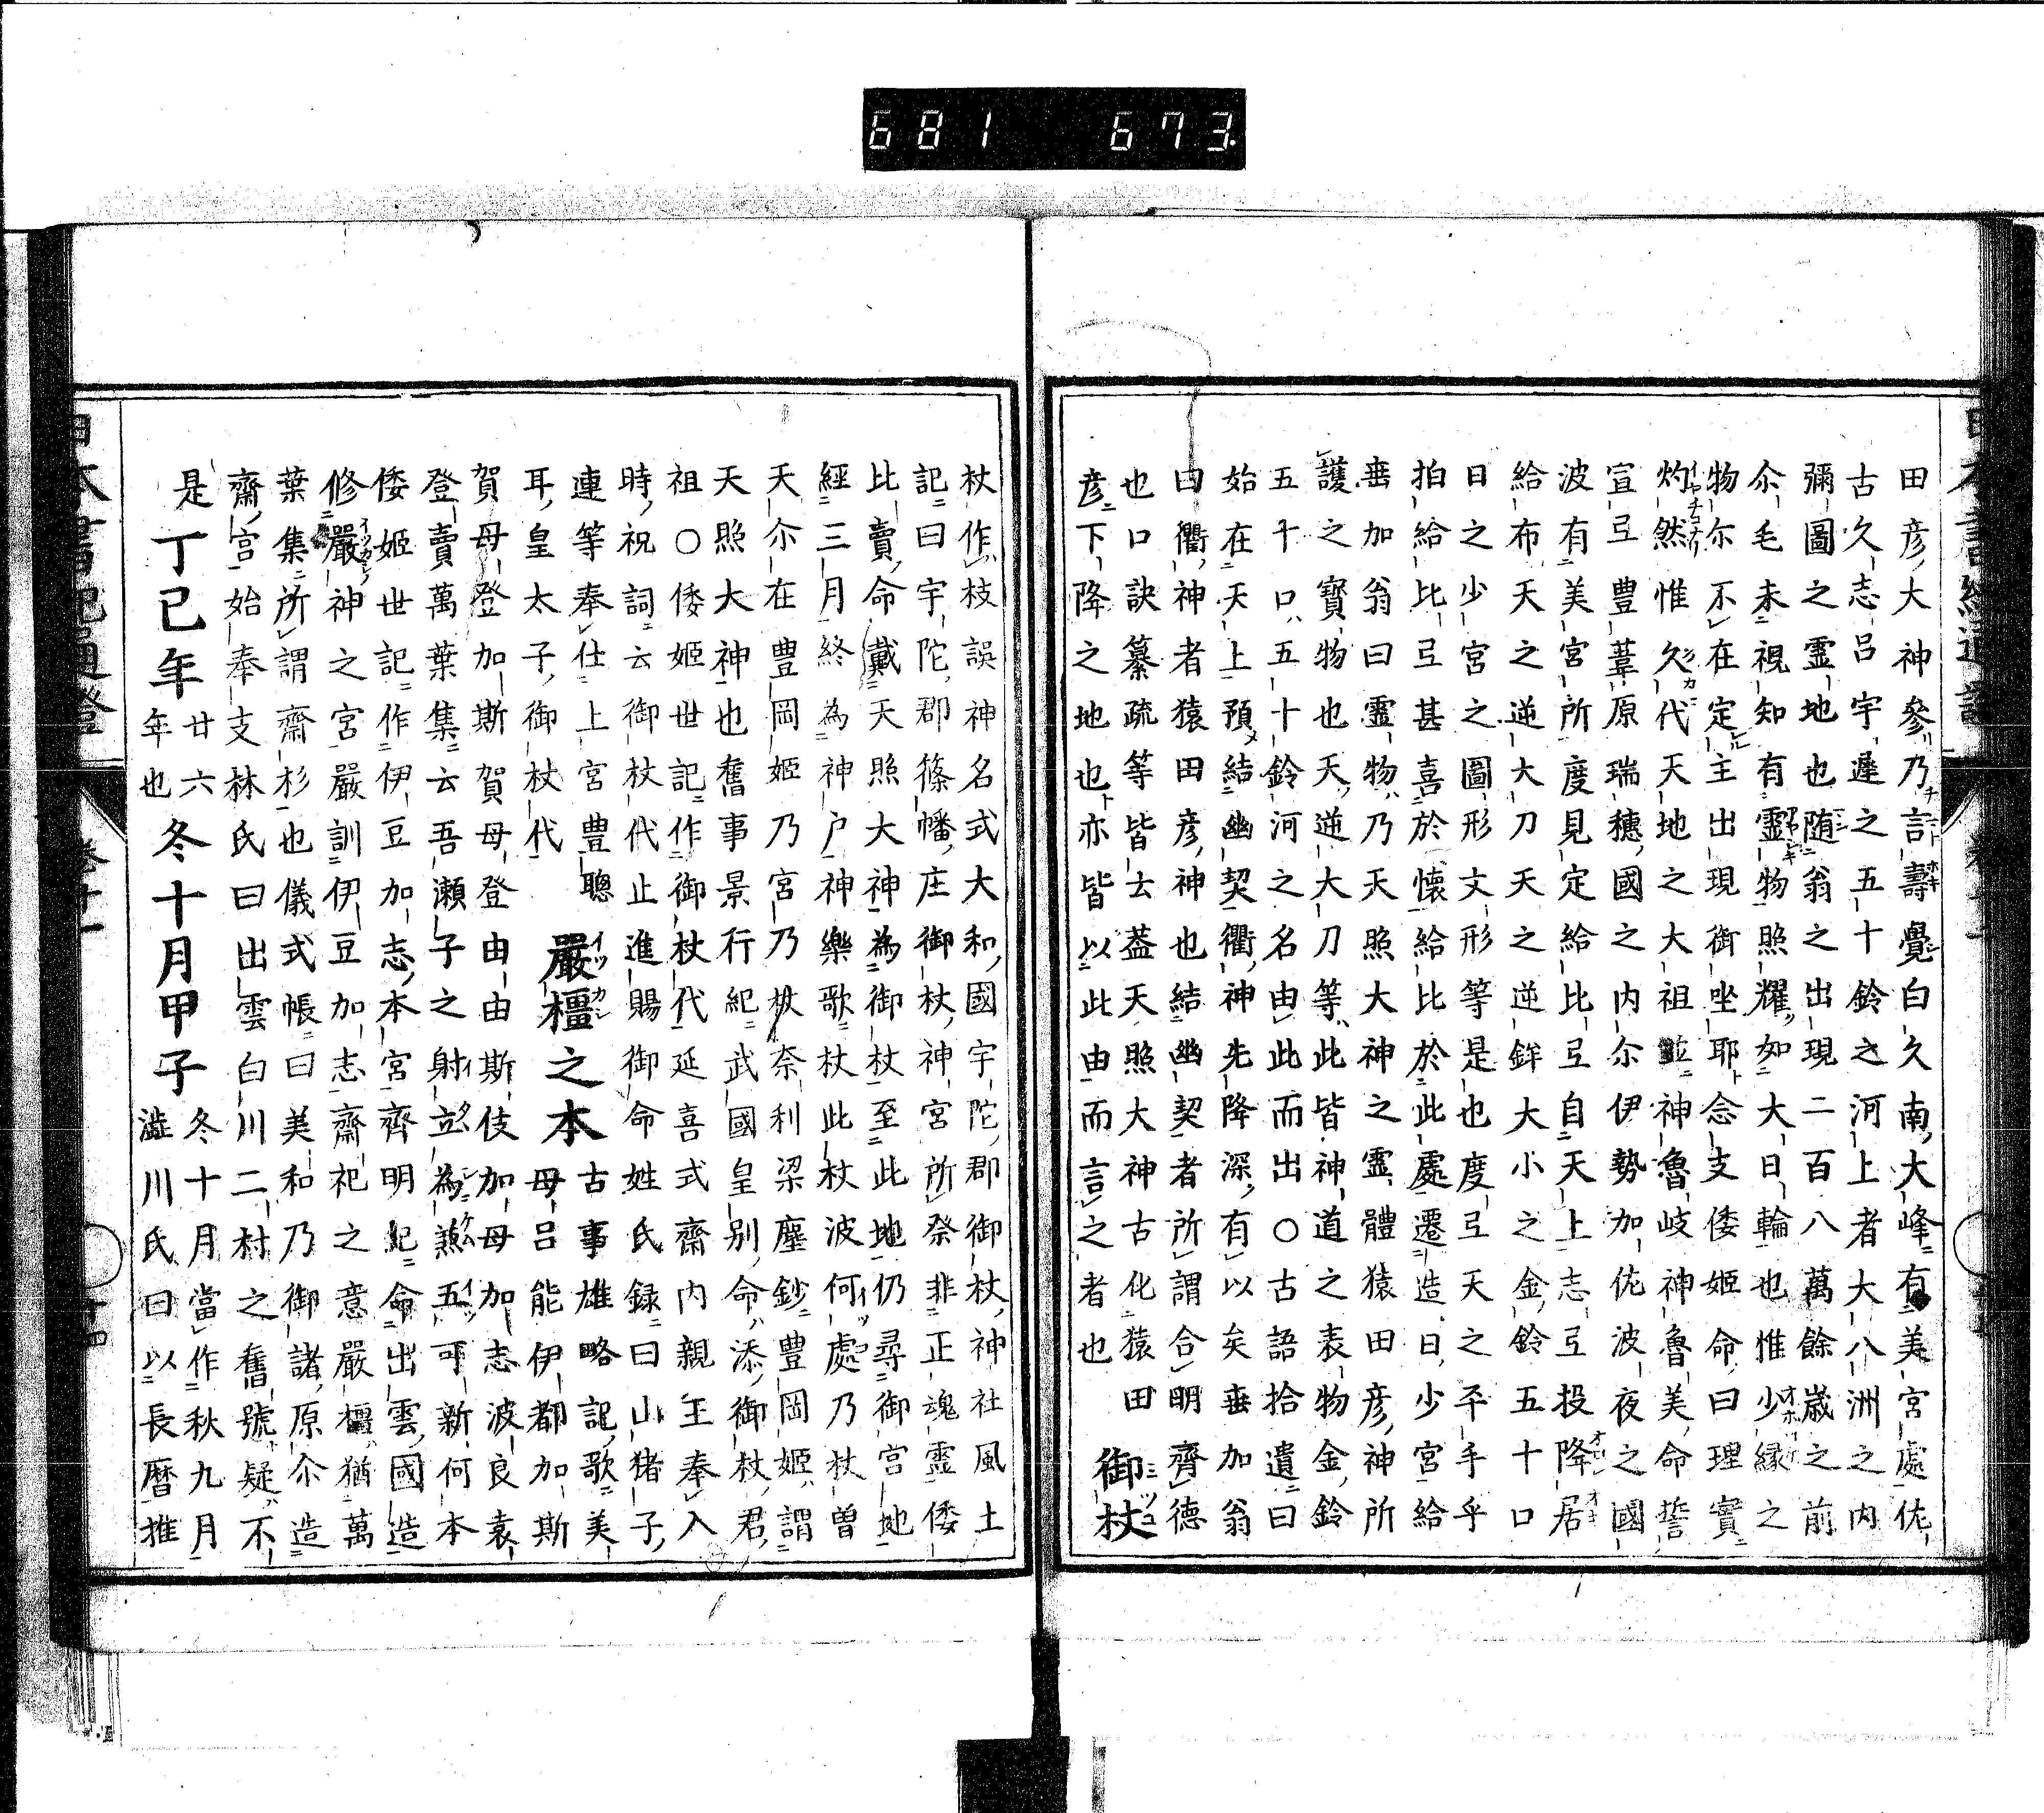 681 673
田彦大神參乃言壽覺白久南大峰有美宮處佐
古久志呂宇遲之五十鈴之河上者大八洲之内
彌圖之霊地也随翁之出現二百八萬餘歳之前
尒毛未視知有靈物照耀如大日輪也惟少縁之
物尓不在定主出現御坐耶念支倭姬命曰理實
灼然惟久代天地之大祖並神魯岐神魯美命誓
宣弖豊葦原瑞穗國之内尓伊勢加佐波夜之國
波有美宮所度見定給比弖自天上志弖投降居
給布天之逆大刀天之逆鉾大小之金鈴五十口
日之少宮之圖形文形等是也度弖天之平手乎
拍給比弖甚喜於懐給比於此處遷造日少宮給
垂加翁曰靈物乃天照大神之靈體猿田彦神所
護之寶物也天逆大刀等此皆神道之表物金鈴
五十口五十鈴河之名由此而出○古語拾遺曰
始在天上預結幽契衢神先降深有以矣垂加翁
曰衢神者猿田彦神也結幽契者所謂合明齊德
也口訣纂疏等皆云蓋天照大神古化猿田
彦下降之地也亦皆以此由而言之者也
御杖
杖作枝誤神名式大和國宇陀郡御杖神社風土
記曰宇陀郡篠幡庄御杖神宮所祭非正魂靈倭
比賣命戴天照大神為御杖至此地仍尋御宮地
經三月終為神戸神樂歌杖此杖波何處乃杖曽
天尒在豊岡姬乃宮乃杖奈利梁塵鈔豊岡姬謂
天照大神也舊事景行紀武國皇別命添御杖君
祖○倭姬世記作御杖代延喜式齋内親王奉入
時祝詞云御杖代止進賜御命姓氏録曰山猪子
連等奉仕上宮豊聰
耳皇太子御杖代
嚴橿之本
古事雄略記歌美
母呂能伊都加斯
賀母登加斯賀母登由由斯伎加母加志波良袁
登賣萬葉集云吾瀬子之射立為兼五可新何本
倭姬世記作伊豆加志本宮齊明紀命出雲國造
修嚴神之宮嚴訓伊豆加志齋祀之意嚴橿猶萬
葉集所謂齋杉也儀式帳曰美和乃御諸原尒造
齋宮始奉支林氏曰出雲白川二村之舊號疑不
是
丁巳年
廿六
年也
冬十月甲子
冬十月當作秋九月
澁川氏曰以長暦推